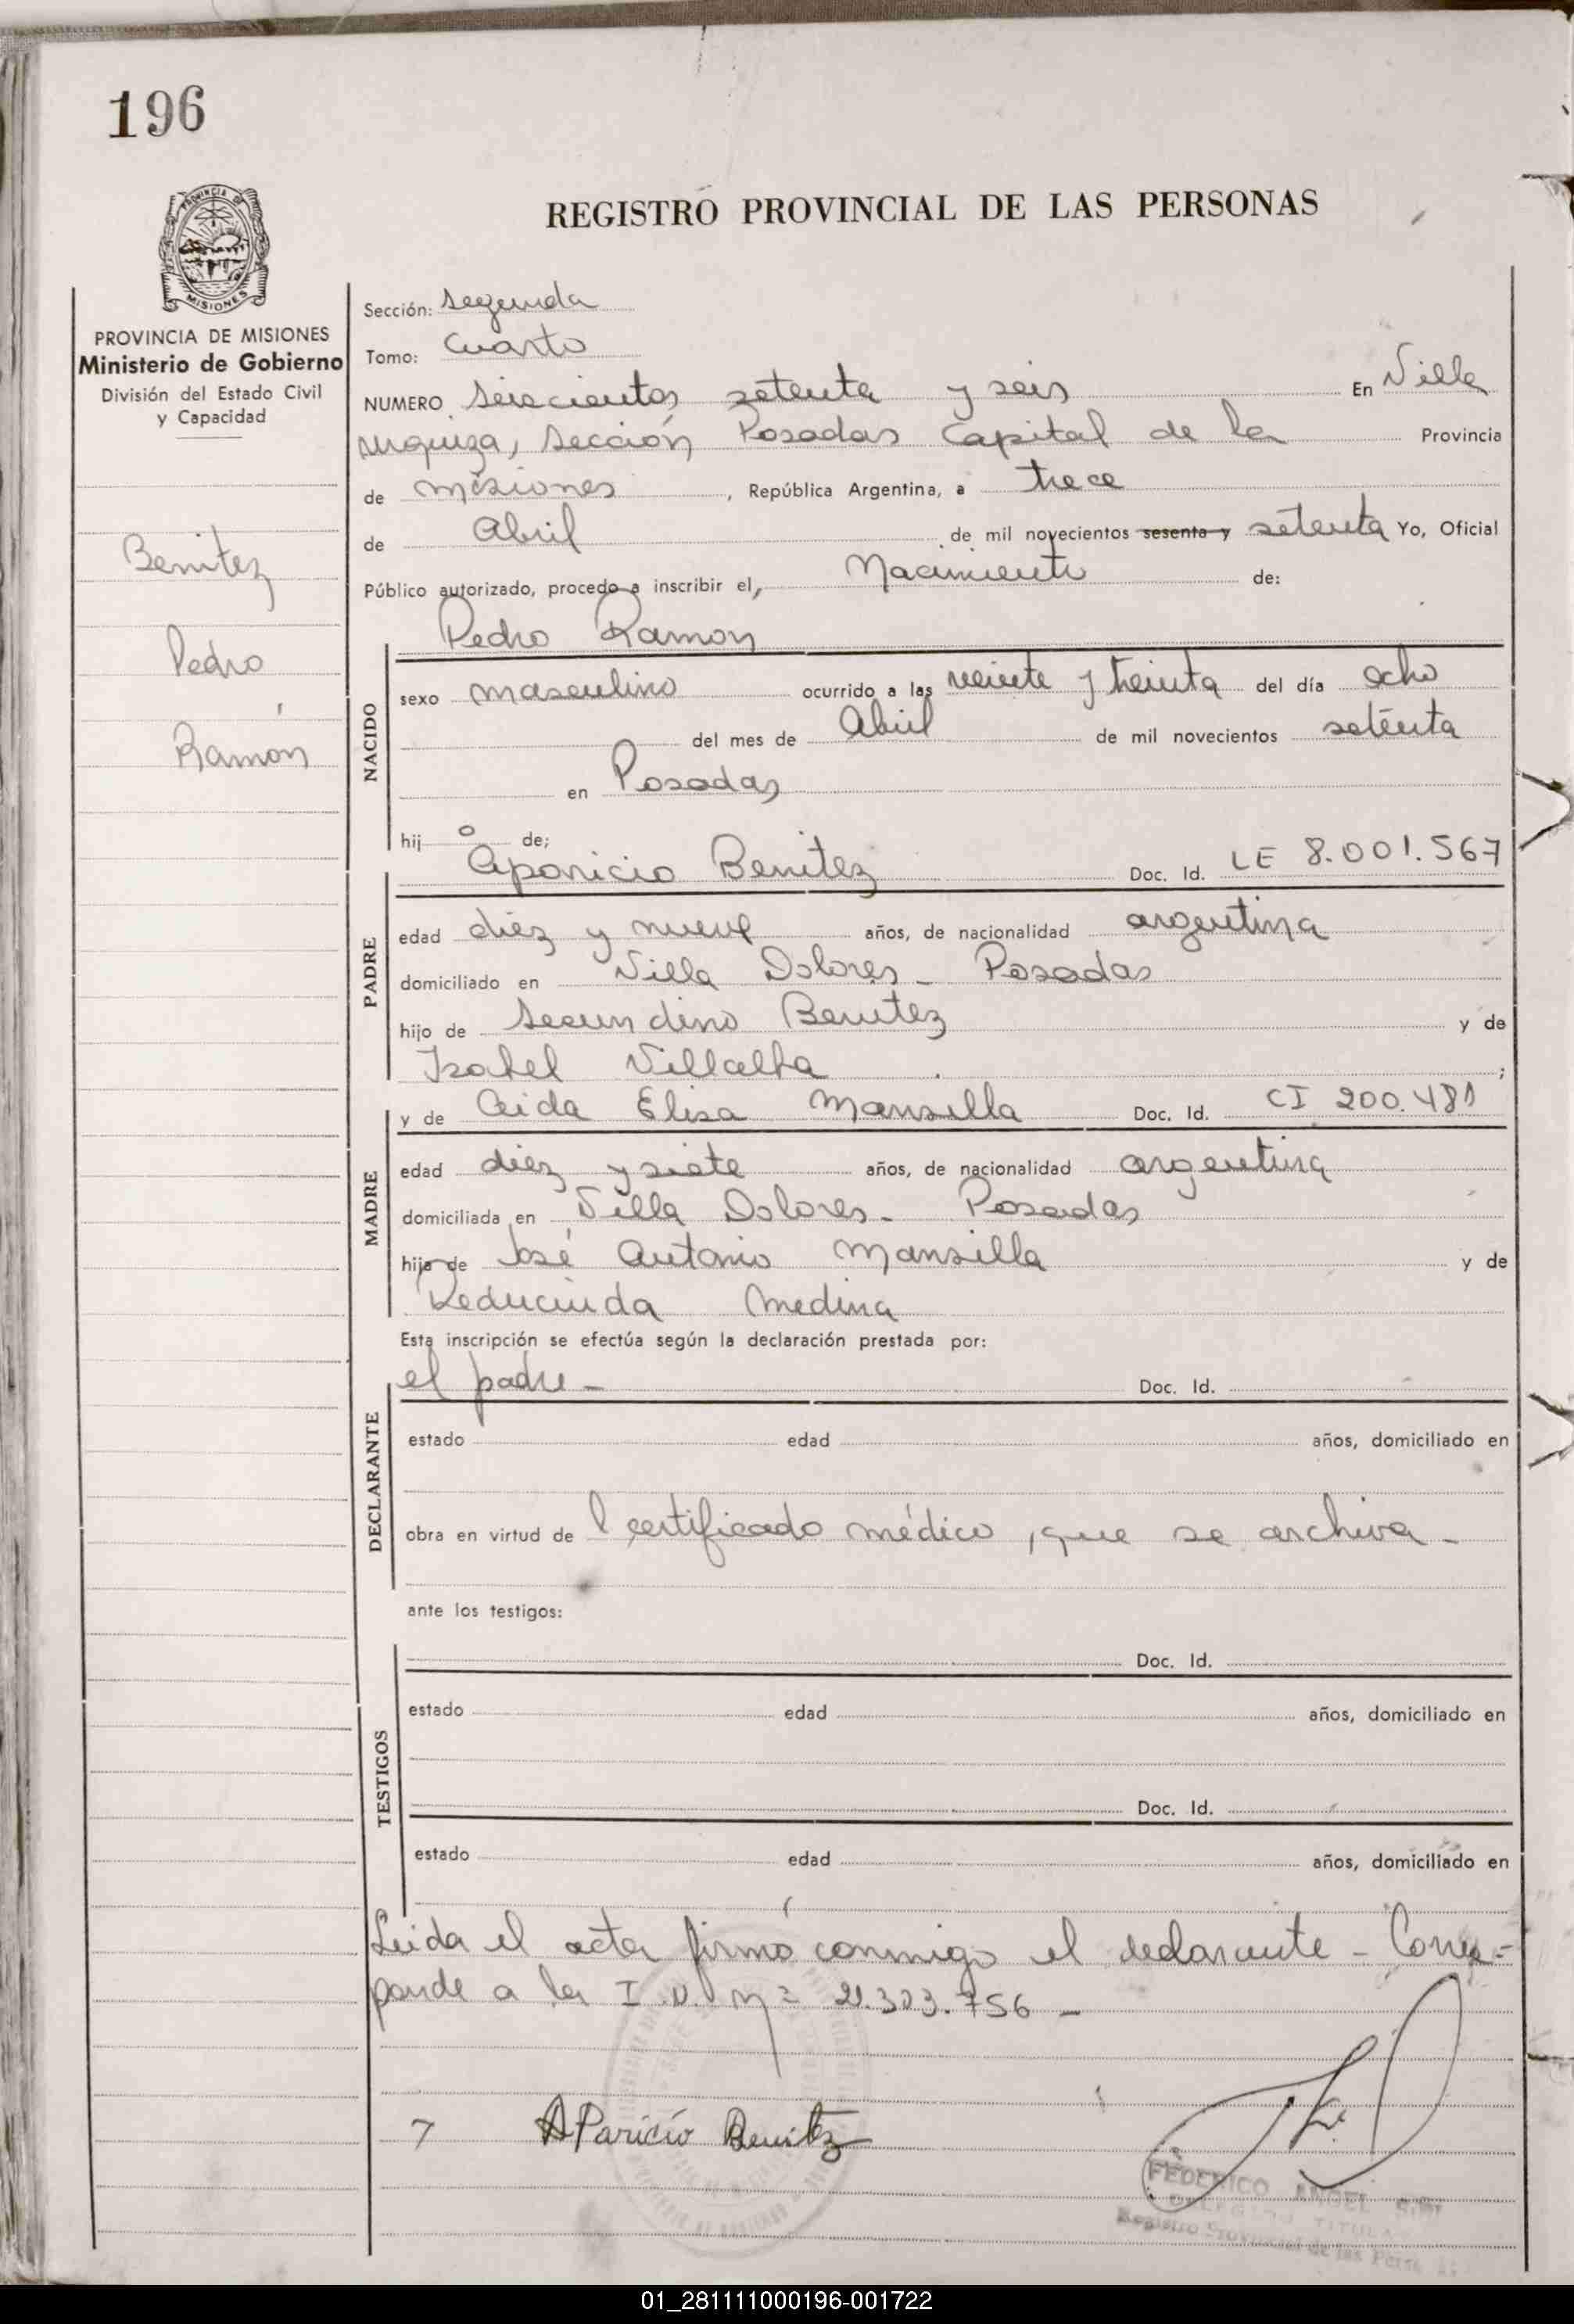 196
PROVINCIA
MISIONES
REGISTRO PROVINCIAL DE LAS PERSONAS
PROVINCIA DE MISIONES
Ministerio de Gobierno
División del Estado Civil
y Capacidad
Benitez
Pedro
Ramón
Sección: segunda
Tomo: Cuarto
NUMERO seiscientos setenta y seis En Villa
urquiza, sección Posadas Capital de la Provincia
de misiones, República Argentina, a trece
de Abril de mil novecientos sesenta y setenta Yo, Oficial
Público autorizado, procedo a inscribir el, Nacimiento de:
Pedro Ramon
NACIDO
sexo masculino ocurrido a las veinte y treinta del día ocho
del mes de Abril de mil novecientos setenta
en Posadas
hijo de;
Aparicio Benitez Doc. Id. LE 8.001.567
PADRE
edad diez y nueve años, de nacionalidad argentina
domiciliado en Villa Dolores - Posadas
hijo de Secundino Benitez y de
Isabel Villalba ;
y de Aida Elisa Mansilla Doc. Id. CI 200.481
MADRE
edad diez y siete años, de nacionalidad argentina
domiciliada en Villa Dolores - Posadas
hija de José Antonio Mansilla y de
Reducinda Medina
Esta inscripción se efectúa según la declaración prestada por:
el padre - Doc. Id.
DECLARANTE
estado edad años, domiciliado en
obra en virtud de l certificado médico, que se archiva -
ante los testigos:
Doc. Id.
TESTIGOS
estado edad años, domiciliado en
Doc. Id.
estado edad años, domiciliado en
Leida el acta firmó conmigo el declarante - Corres-
ponde a la I.D. Nº 21.303.756 -
APariciо Benitez
FEDERICO ANGEL
TITULAR
Registro Provincial de las Pers
01_281111000196-001722